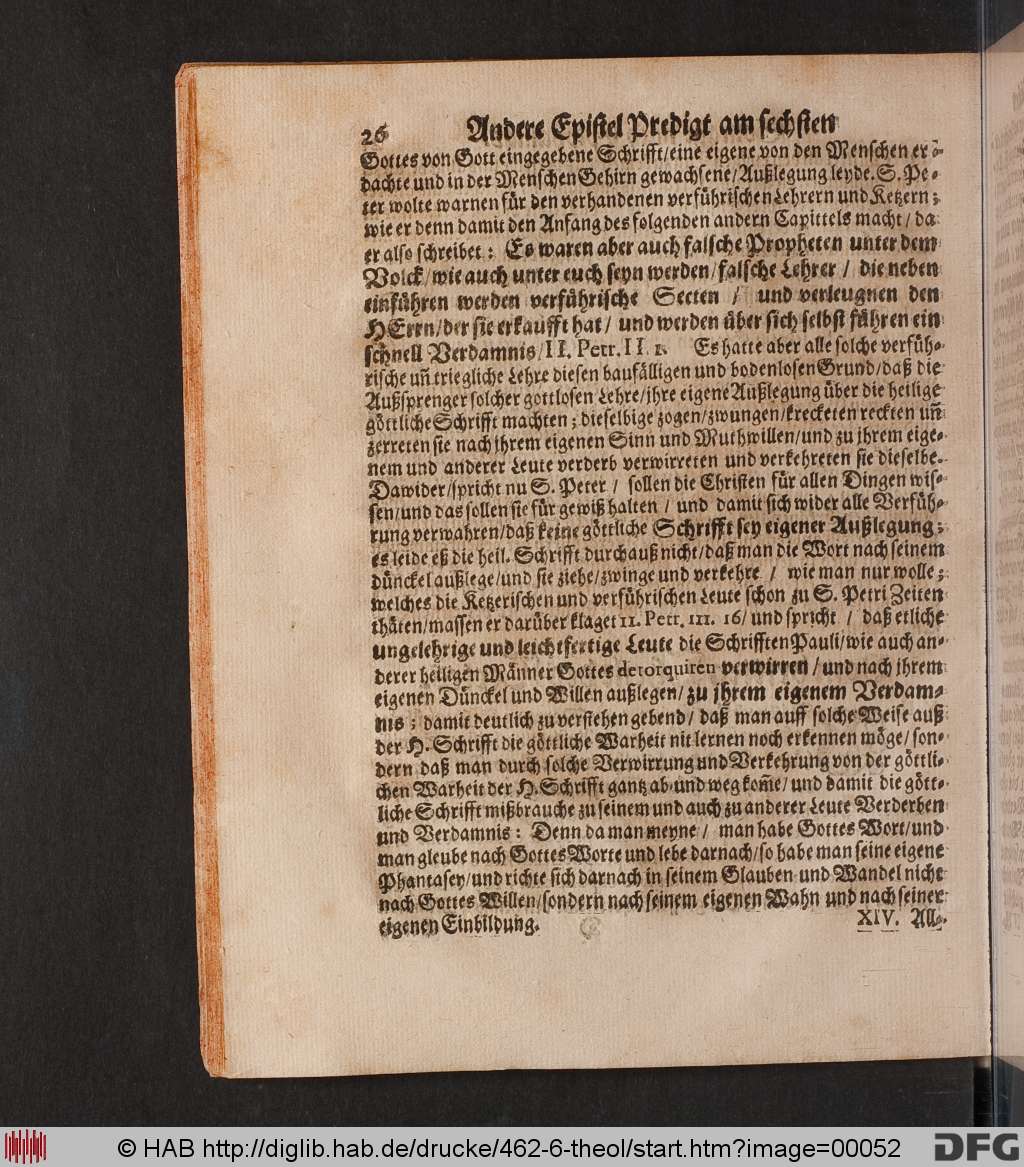 26 Andere Epistel Predigt am sechsten
Gottes von Gott eingegebene Schrifft/eine eigene von den Menschen er-
dachte und in der Menschen Gehirn gewachsene/Außlegung leyde. S. Pe-
ter wolte warnen für den verhandenen verführischen Lehrern und Ketzern;
wie er denn damit den Anfang des folgenden andern Capittels macht/ da
er also schreibet: Es waren aber auch falsche Propheten unter dem
Volck/wie auch unter euch seyn werden/falsche Lehrer / die neben
einführen werden verführische Secten / und verleugnen den
HErrn/der sie erkaufft hat/ und werden über sich selbst führen ein
schnell Verdamnis/II. Petr. II. 1. Es hatte aber alle solche verfüh-
rische uñ triegliche Lehre diesen baufälligen und bodenlosen Grund/daß die
Außsprenger solcher gottlosen Lehre/jhre eigene Außlegung über die heilige
göttliche Schrifft machten; dieselbige zogen/zwungen/krecketen reckten uñ
zerreten sie nach jhrem eigenen Sinn und Muthwillen/und zu jhrem eige-
nem und anderer Leute verderb verwirreten und verkehreten sie dieselbe.
Dawider/spricht nu S. Peter / sollen die Christen für allen Dingen wis-
sen/und das sollen sie für gewiß halten / und damit sich wider alle Verfüh-
rung verwahren/daß keine göttliche Schrifft sey eigener Außlegung;
es leide eß die heil. Schrifft durchauß nicht/daß man die Wort nach seinem
dünckel außlege/und sie ziehe/zwinge und verkehre / wie man nur wolle;
welches die Ketzerischen und verführischen Leute schon zu S. Petri Zeiten
thäten/massen er darüber klaget II. Petr. III. 16/ und spricht / daß etliche
ungelehrige und leichtfertige Leute die Schrifften Pauli/wie auch an-
derer heiligen Männer Gottes detorquiren verwirren / und nach jhrem
eigenen Dünckel und Willen außlegen/ zu jhrem eigenem Verdam-
nis; damit deutlich zu verstehen gebend/ daß man auff solche Weise auß
der H. Schrifft die göttliche Warheit nit lernen noch erkennen möge/ son-
dern daß man durch solche Verwirrung und Verkehrung von der göttli-
chen Warheit der H. Schrifft gantz ab-und weg kom̃e/ und damit die gött-
liche Schrifft mißbrauche zu seinem und auch zu anderer Leute Verderben
und Verdamnis: Denn da man meyne / man habe Gottes Wort/und
man gleube nach Gottes Worte und lebe darnach/so habe man seine eigene
Phantasey/und richte sich darnach in seinem Glauben und Wandel nicht
nach Gottes Willen/sondern nach seinem eigenen Wahn und nach seiner
eigenen Einbildung.
XIV. All-
© HAB http://diglib.hab.de/drucke/462-6-theol/start.htm?image=00052
DFG